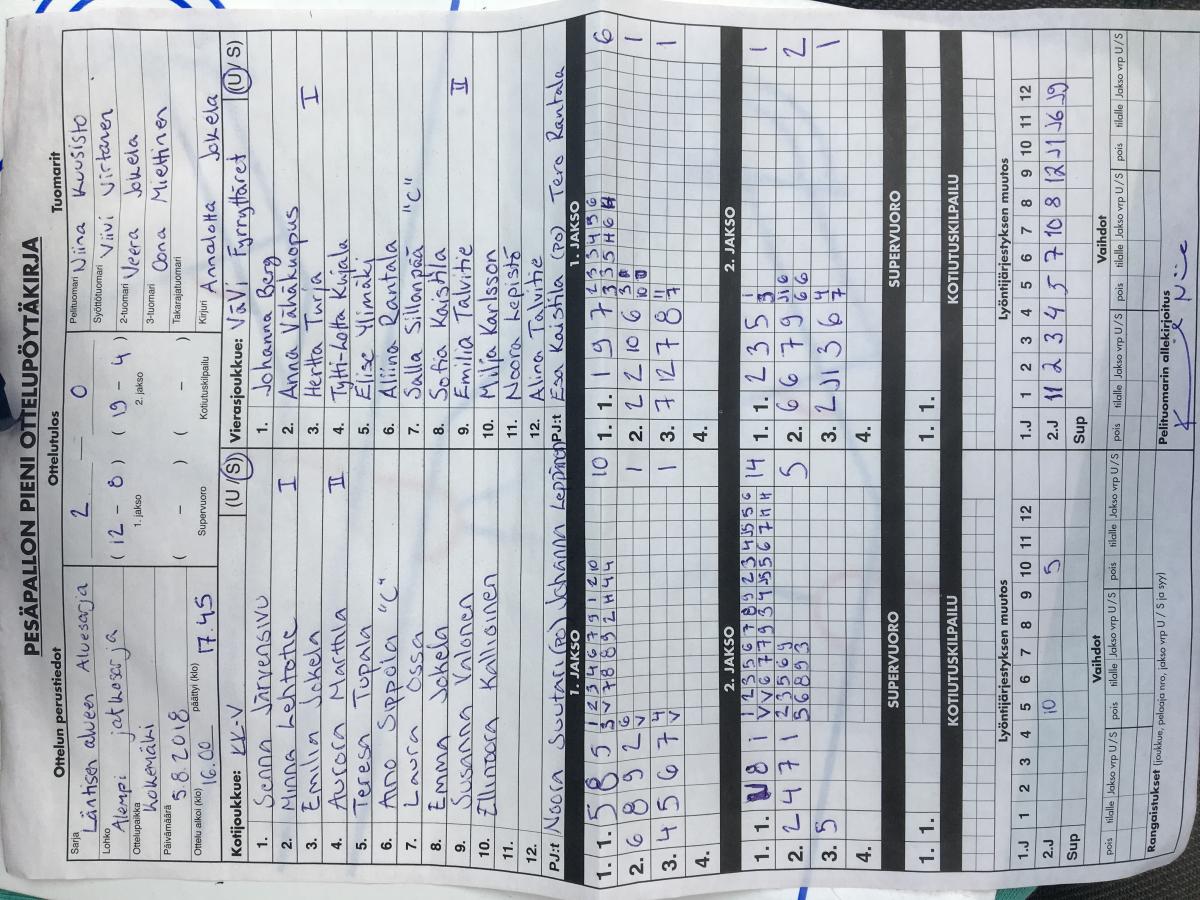 PESÄPALLON PIENI OTTELUPÖYTÄKIRJA
Ottelun perustiedot
Ottelutulos
Tuomarit
Sarja
Läntisen alueen Aluesarja
Lohko
Alempi jatkosarja
Ottelupaikka
Kokemäki
Päivämäärä
5.8.2018
Ottelu alkoi (klo) 16.00 päättyi (klo) 17.45
2 — 0
(12 – 8) (19 – 4)
1. jakso 2. jakso
( – ) ( – )
Supervuoro Kotiutuskilpailu
Pelituomari Niina Kuusisto
Syöttötuomari Viivi Virtanen
2-tuomari Veera Jokela
3-tuomari Oona Miettinen
Takarajatuomari
Kirjuri Annalotta Jokela
Kotijoukkue: KK-V (U/S)
1. Senna Järvensivu
2. Minna Lehtotie I
3. Emilia Jokela
4. Aurora Marttila II
5. Teresa Tupala
6. Aino Sippola "C"
7. Laura Ossa
8. Emma Jokela
9. Susanna Valonen
10. Ellinoora Kallioinen
11.
12.
PJ:t Noora Suutari (PO) Johanna Leppinen
Vierasjoukkue: VäVi Fyrryttäret (U/S)
1. Johanna Berg
2. Anna Vähäkuopus
3. Hertta Turja I
4. Tytti-Lotta Kujala
5. Elise Ylimäki
6. Aliina Rantala
7. Salla Sillanpää "C"
8. Sofia Kaistila
9. Emilia Talvitie II
10. Milja Karlsson
11. Noora Lepistö
12. Alina Talvitie
PJ:t Esa Kaistila (PO) Tero Rantala
1. JAKSO
1. 1. 5 8 5 10
2. 6 8 9 2 1
3. 4 5 6 7 1
4.
1. JAKSO
1. 1. 1 9 7 6
2. 2 2 10 6 1
3. 7 12 7 8 1
4.
2. JAKSO
1. 1. 8 1 14
2. 2 4 7 1 5
3. 5
4.
2. JAKSO
1. 1. 2 3 5 1
2. 6 6 7 9 2
3. 2 J1 3 6 1
4.
SUPERVUORO
1. 1.
SUPERVUORO
1. 1.
KOTIUTUSKILPAILU
KOTIUTUSKILPAILU
Lyöntijärjestyksen muutos
1.J 1 2 3 4 5 6 7 8 9 10 11 12
2.J 10 5
Sup
Lyöntijärjestyksen muutos
1.J 1 2 3 4 5 6 7 8 9 10 11 12
2.J 11 2 3 4 5 7 10 8 12 J1 J6 J9
Sup
Vaihdot
pois tilalle Jakso vrp U/S pois tilalle Jakso vrp U/S pois tilalle Jakso vrp U/S
Vaihdot
pois tilalle Jakso vrp U/S pois tilalle Jakso vrp U/S pois tilalle Jakso vrp U/S
Rangaistukset (joukkue, pelaaja nro, jakso vrp U/S ja syy)
Pelituomarin allekirjoitus